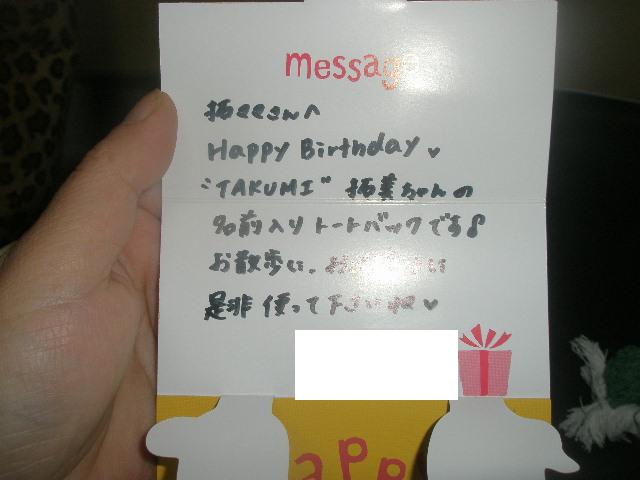 message
拓ママさんへ
Happy Birthday♥
"TAKUMI" 拓美ちゃんの
名前入りトートバックです♪
お散歩に、お
是非使って下さいネ♥
app